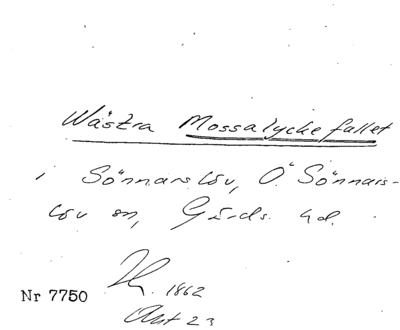 Wästra Mossalyckefallet
i Sönnarslöv, Ö. Sönnars-
löv sn, Gärds hd.
1862
Nr 7750
Akt 23